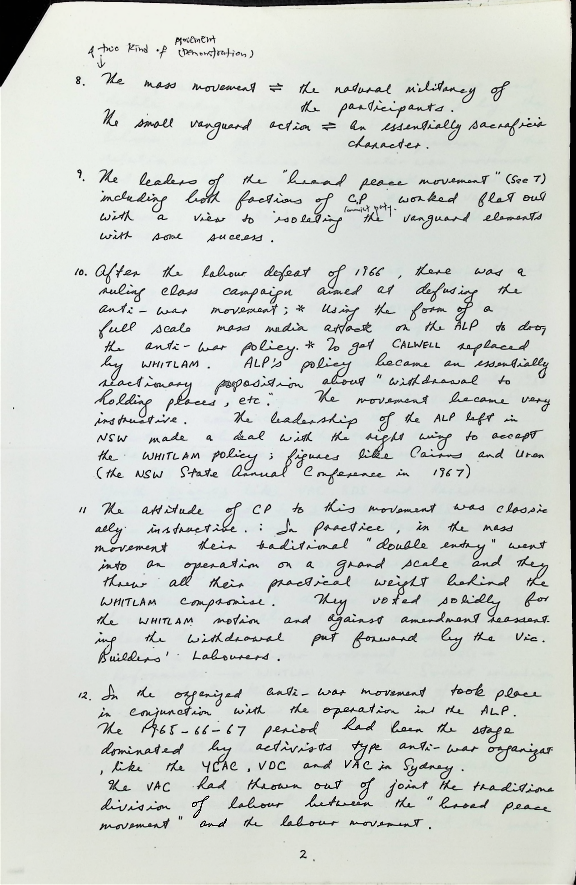 movement
two kind of (Demonstration)
8. The mass movement ⇌ the natural militancy of
the participants.
The small vanguard action ⇌ an essentially sacraficia
character.
9. The leaders of the "broad peace movement" (See 7)
including both factions of CP worked flat out
with a view to isolating the vanguard elements
with some success.
10. After the labour defeat of 1966, there was a
ruling class campaign aimed at defusing the
anti-war movement; * Using the form of a
full scale mass media attack on the ALP to drop
the anti-war policy. * To get CALWELL replaced
by WHITLAM. ALP's policy became an essentially
reactionary proposition about "withdrawal to
holding places, etc." The movement became very
instructive. The leadership of the ALP left in
NSW made a deal with the right wing to accept
the WHITLAM policy; figures like Cairns and Uren
(the NSW State Annual Conference in 1967)
11 The attitude of CP to this movement was classic
ally instructive. : In practice, in the mass
movement their traditional "double entry" went
into an operation on a grand scale and they
threw all their practical weight behind the
WHITLAM compromise. They voted solidly for
the WHITLAM motion and against amendment reassert
ing the withdrawal put forward by the Vic.
Builders' Labourers.
12. In the organized anti-war movement took place
in conjunction with the operation in the ALP.
The 1965-66-67 period had been the stage
dominated by activists type anti-war organizat
, like the YCAC, VDC and VAC in Sydney.
The VAC had thrown out of joint the traditiona
division of labour between the "broad peace
movement" and the labour movement.
2.